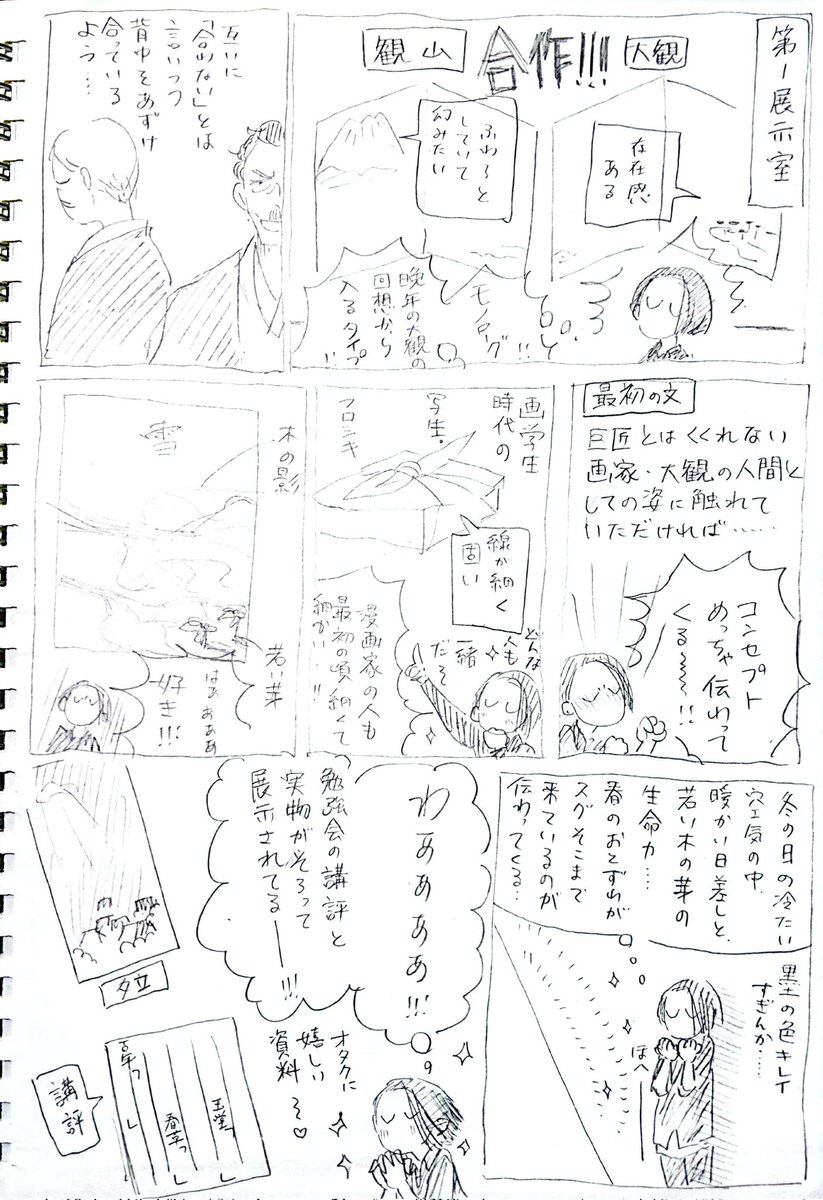 第一展示室
大観
合作!!!
観山
存在感
ある
ふわっと
していて
包みたい
モノローグ
!!
晩年の大観の
回想から
入るタイプ
!!
互いに
「合わない」とは
言いつつ
背中をあずけ
合っている
よう…
最初の文
巨匠とはくくれない
画家・大観の人間と
しての姿に触れて
いただければ……
コンセプト
めっちゃ伝わって
くる〜〜!!
画学生
時代の
写生。
フロシキ
線が細く
固い
どんな
人も
一緒
だぞ
漫画家の人も
最初の頃細くて
細かい…!!
木の影
雪
若い芽
はぁぁぁぁ
好き!!!
冬の日の冷たい
空気の中、
暖かい日差しと、
若い木の芽の
生命力……
春のおとずれが
スグそこまで
来ているのが
伝わってくる…
墨の色キレイ
すぎんか……
ほへー
わぁぁぁぁ!!!
勉強会の講評と
実物がそろって
展示されてるー!!!
オタクに
嬉しい
資料〜♡
夕立
講評
玉堂っ
し
春草っ
し
草っ
し